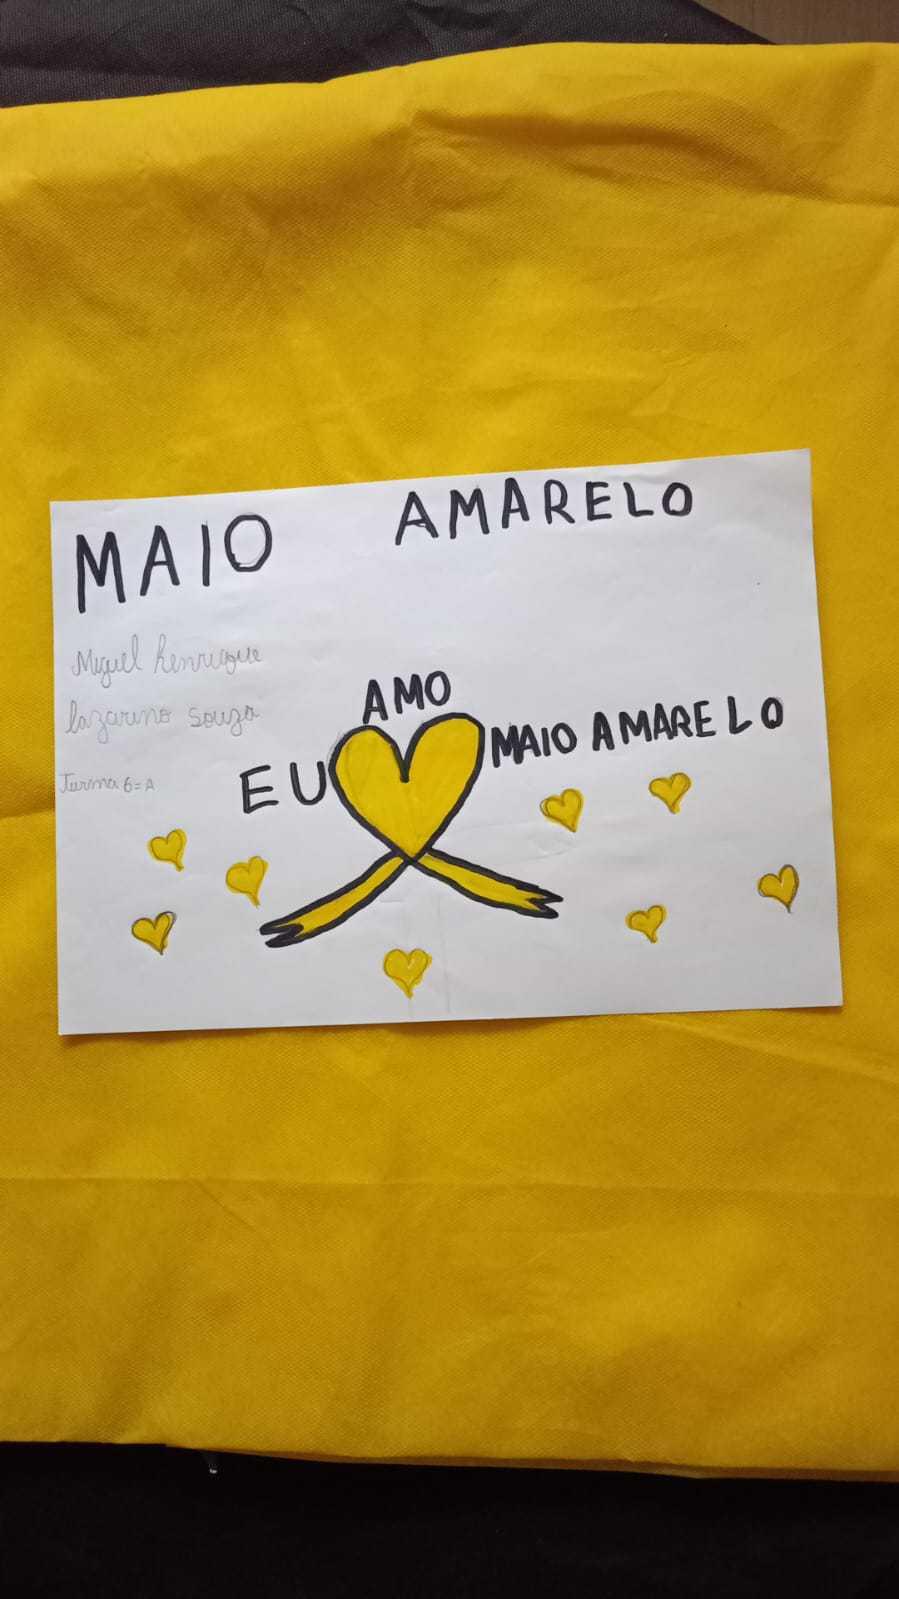 MAIO AMARELO
Miguel Henrique
Lazarino Souza
Turma 6=A
AMO
EU MAIO AMARELO